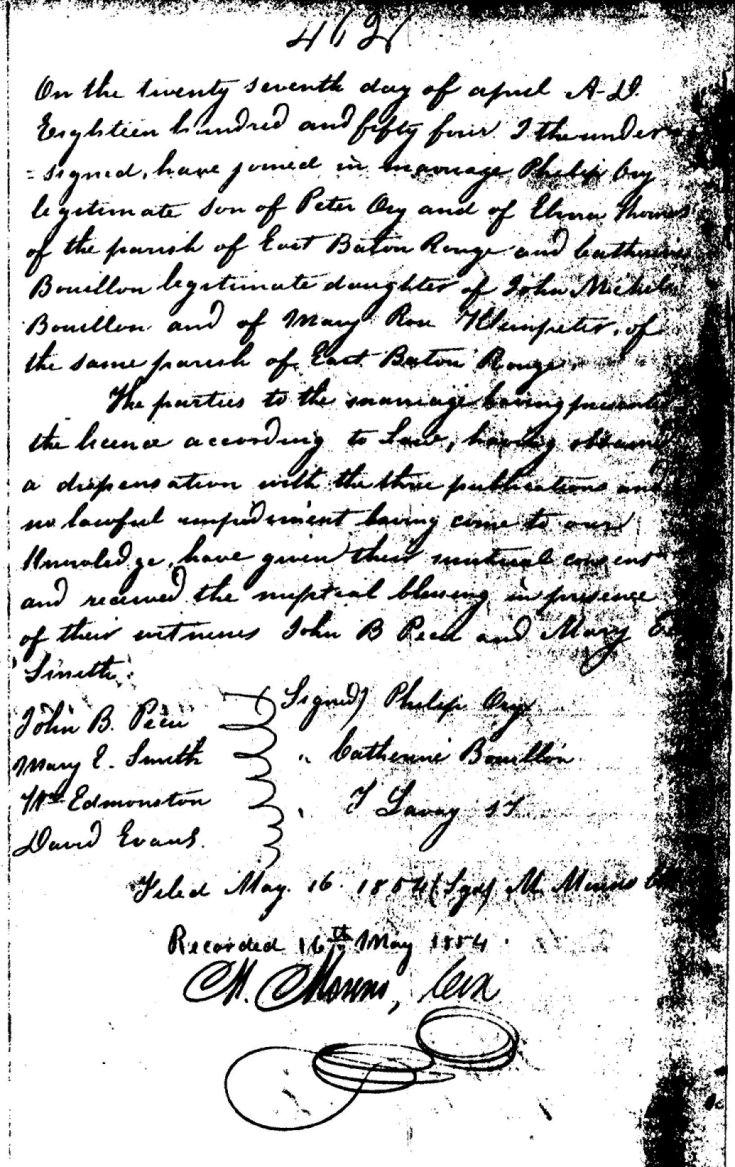 462
On the twenty seventh day of april A.D.
Eighteen hundred and fifty four I the under
-signed, have joined in marriage Philip Ory
legitimate son of Peter Ory and of Elvira Thomas
of the parish of East Baton Rouge and Catherine
Bouillon legitimate daughter of John Michel
Bouillon and of Mary Rose Klumpeter, of
the same parish of East Baton Rouge.
The parties to the marriage having presented
the licence according to Law, having obtained
a dispensation with the three publications and
no lawful impediment having come to our
Knowledge, have given their mutual consent
and received the nuptial blessing in presence
of their witnesses John B and Mary E
Smith.
John B.
Mary E. Smith
Wm Edmonston
David Evans.
Signed) Philip Ory
" Catherine Bouillon
" SJ
Filed May. 16. 1854 (Sgd) M.
Recorded 16th May 1854.
M.